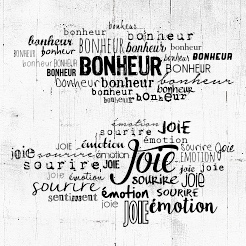 bonheur
bonheur bonheur
bonheur BONHEUR bonheur bonheur
bonheur bonheur BONHEUR
BONHEUR BONHEUR BONHEUR
Bonheur bonheur bonheur
bonheur bonheur
bonheur
émotion
sourire JOIE
joie émotion émotion
joie sourire émotion Joie sourire Joie
EMOTION
joie émotion joie joie
sourire sourire JOIE
sentiment émotion sourire
joie JOIE émotion